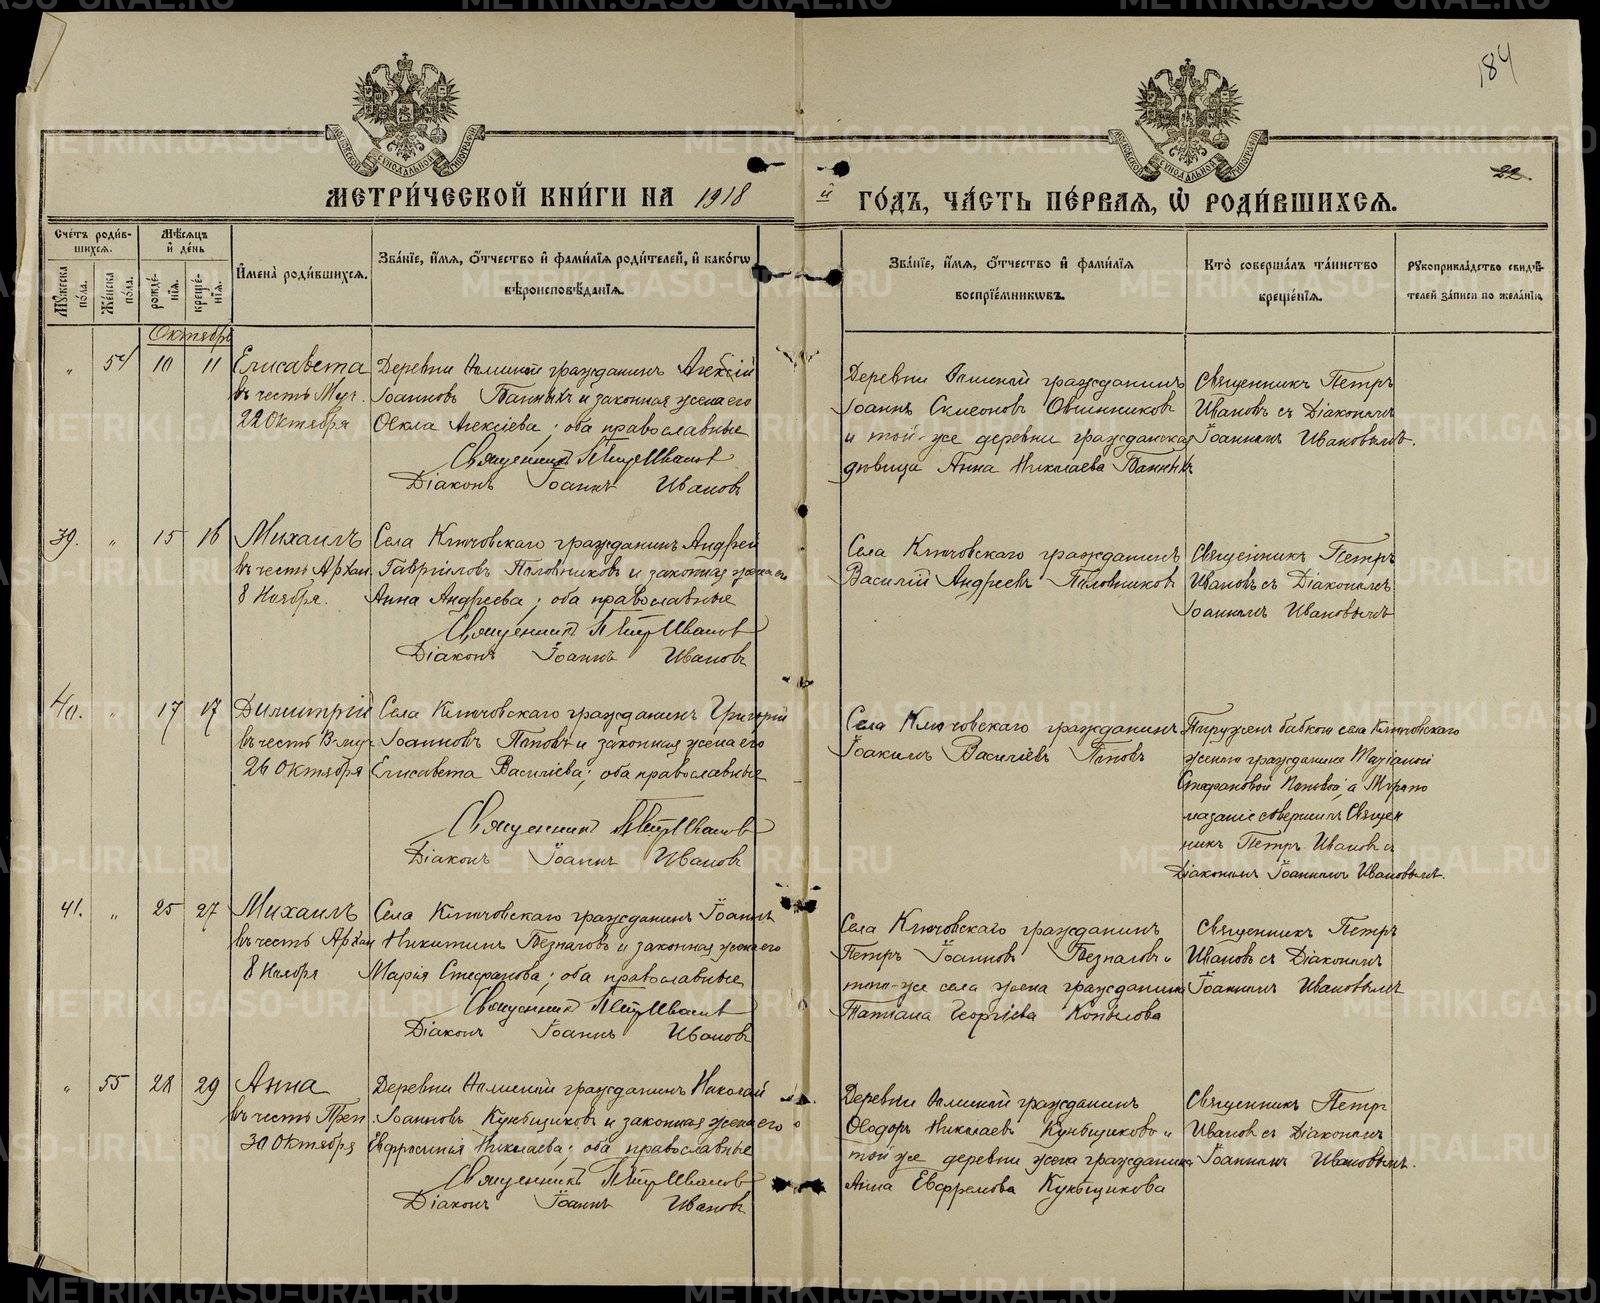 184
22
МЕТРИ́ЧЕСКОЙ КНИ́ГИ НА 1918 й ГО́ДЪ, ЧА́СТЬ ПЕ́РВАЯ, Ѽ РОДИ́ВШИХСЯ.
Сче́тъ роди́вшихся.
Мꙋ́жеска по́ла.
Же́нска по́ла.
Мѣ́сяцъ и҆ де́нь
рожде́нїя.
креще́нїя.
И҆мена̀ роди́вшихся.
Зва́нїе, и҆́мя, ѻ҆́тчество и҆ фами́лїя роди́телей, и҆ како́гѡ
вѣроисповѣ́данїя.
Зва́нїе, и҆́мя, ѻ҆́тчество и҆ фами́лїя
воспрїе́мникѡвъ.
Кто̀ соверша́лъ та́инство
креще́нїя.
Рꙋкоприкла́дство свидѣ́телей за́писи по жела́нїю.
Октябрь
" 54 10 11
Елисавета
въ честь Муч.
22 Октября
гражданинъ Алексій
Іоанновъ Банныхъ и законная жена его
Ѳекла Алексіева; оба православные
Священникъ Петръ Ивановъ
Діаконъ Іоаннъ Ивановъ
гражданинъ
Іоаннъ Симеоновъ Овчинниковъ
и той-же деревни гражданская
дѣвица Анна Николаева Банныхъ
Священникъ Петръ
Ивановъ съ Діакономъ
Іоанномъ Ивановымъ.
39. " 15 16
Михаилъ
въ честь Архан.
8 Ноября.
Села Ключовскаго гражданинъ Андрей
Гавріиловъ Половниковъ и законная жена его
Анна Андреева; оба православные
Священникъ Петръ Ивановъ
Діаконъ Іоаннъ Ивановъ
Села Ключовскаго гражданинъ
Василій Андреевъ Половниковъ
Священникъ Петръ
Ивановъ съ Діакономъ
Іоанномъ Ивановымъ
40. " 17 17
Димитрій
въ честь В-муч
26 Октября
Села Ключовскаго гражданинъ Григорій
Іоанновъ Поповъ и законная жена его
Елисавета Василіева; оба православные
Священникъ Петръ Ивановъ
Діаконъ Іоаннъ Ивановъ
Села Ключовскаго гражданинъ
Іоакимъ Василіевъ Поповъ
Погруженъ бабкою села Ключовскаго
женою гражданина Маріамой
Стефановой Поповой, а Муропо
мазаніе совершилъ Священ
никъ Петръ Ивановъ съ
Діакономъ Іоанномъ Ивановымъ.
41. " 25 27
Михаилъ
въ честь Архан
8 Ноября
Села Ключовскаго гражданинъ Іоаннъ
Никитинъ Безпаловъ и законная жена его
Марія Стефанова; оба православные
Священникъ Петръ Ивановъ
Діаконъ Іоаннъ Ивановъ
Села Ключовскаго гражданинъ
Петръ Іоанновъ Безпаловъ и
того-же села жена гражданина
Татіана Георгіева Копылова
Священникъ Петръ
Ивановъ съ Діакономъ
Іоанномъ Ивановымъ
" 55 28 29
Анна
въ честь Преп.
30 Октября
гражданинъ Николай
Іоанновъ Кукѣщиковъ и законная жена его
Евфросинія Николаева; оба православные
Священникъ Петръ Ивановъ
Діаконъ Іоаннъ Ивановъ
гражданинъ
Ѳеодоръ Николаевъ Кукѣщиковъ и
той же деревни жена гражданина
Анна Евфремова Кукѣщикова
Священникъ Петръ
Ивановъ съ Діакономъ
Іоанномъ Ивановымъ.
METRIKI.GASO-URAL.RU